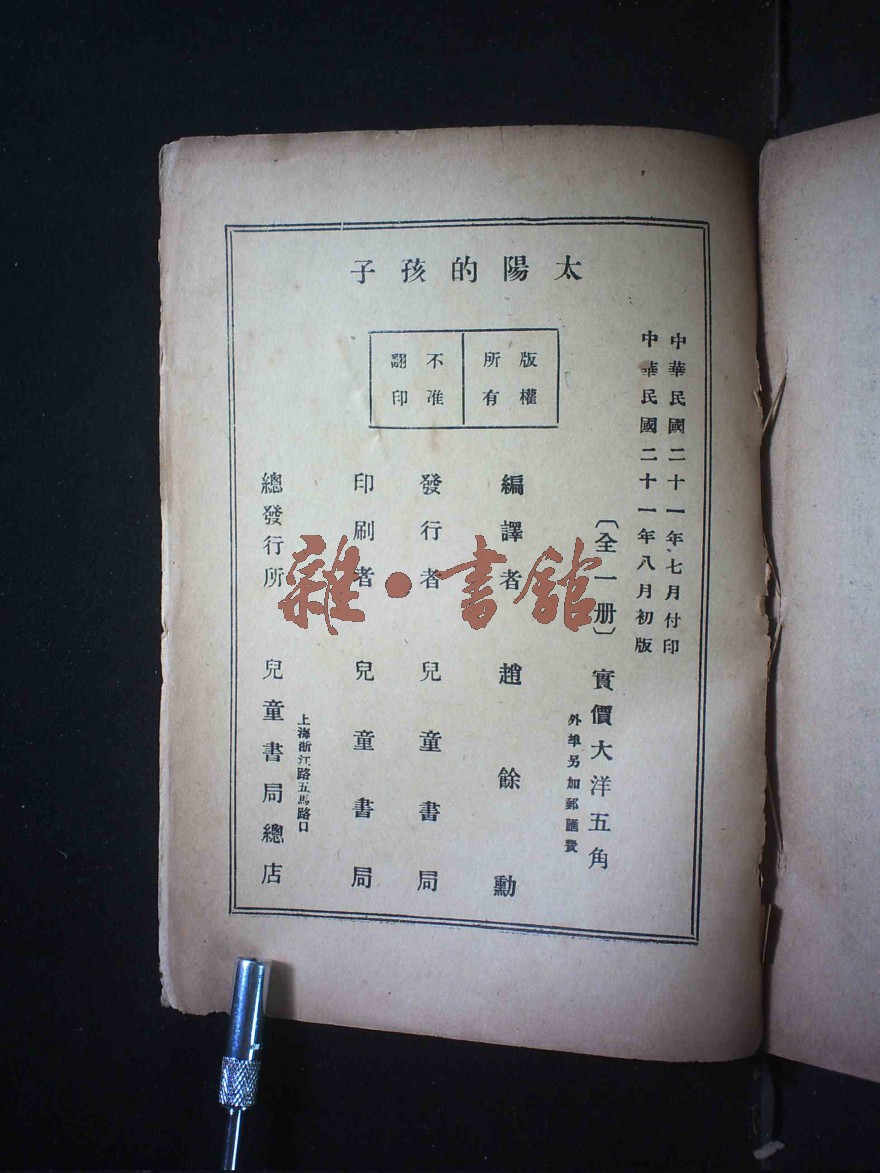 太陽的孩子
中華民國二十一年、七月付印
中華民國二十一年八月初版
〔全一册〕實價大洋五角
外埠另加郵匯費
版權
所有
不准
翻印
編譯者 趙餘勳
發行者 兒童書局
印刷者 兒童書局
上海浙江路五馬路口
總發行所 兒童書局總店
雜·書館